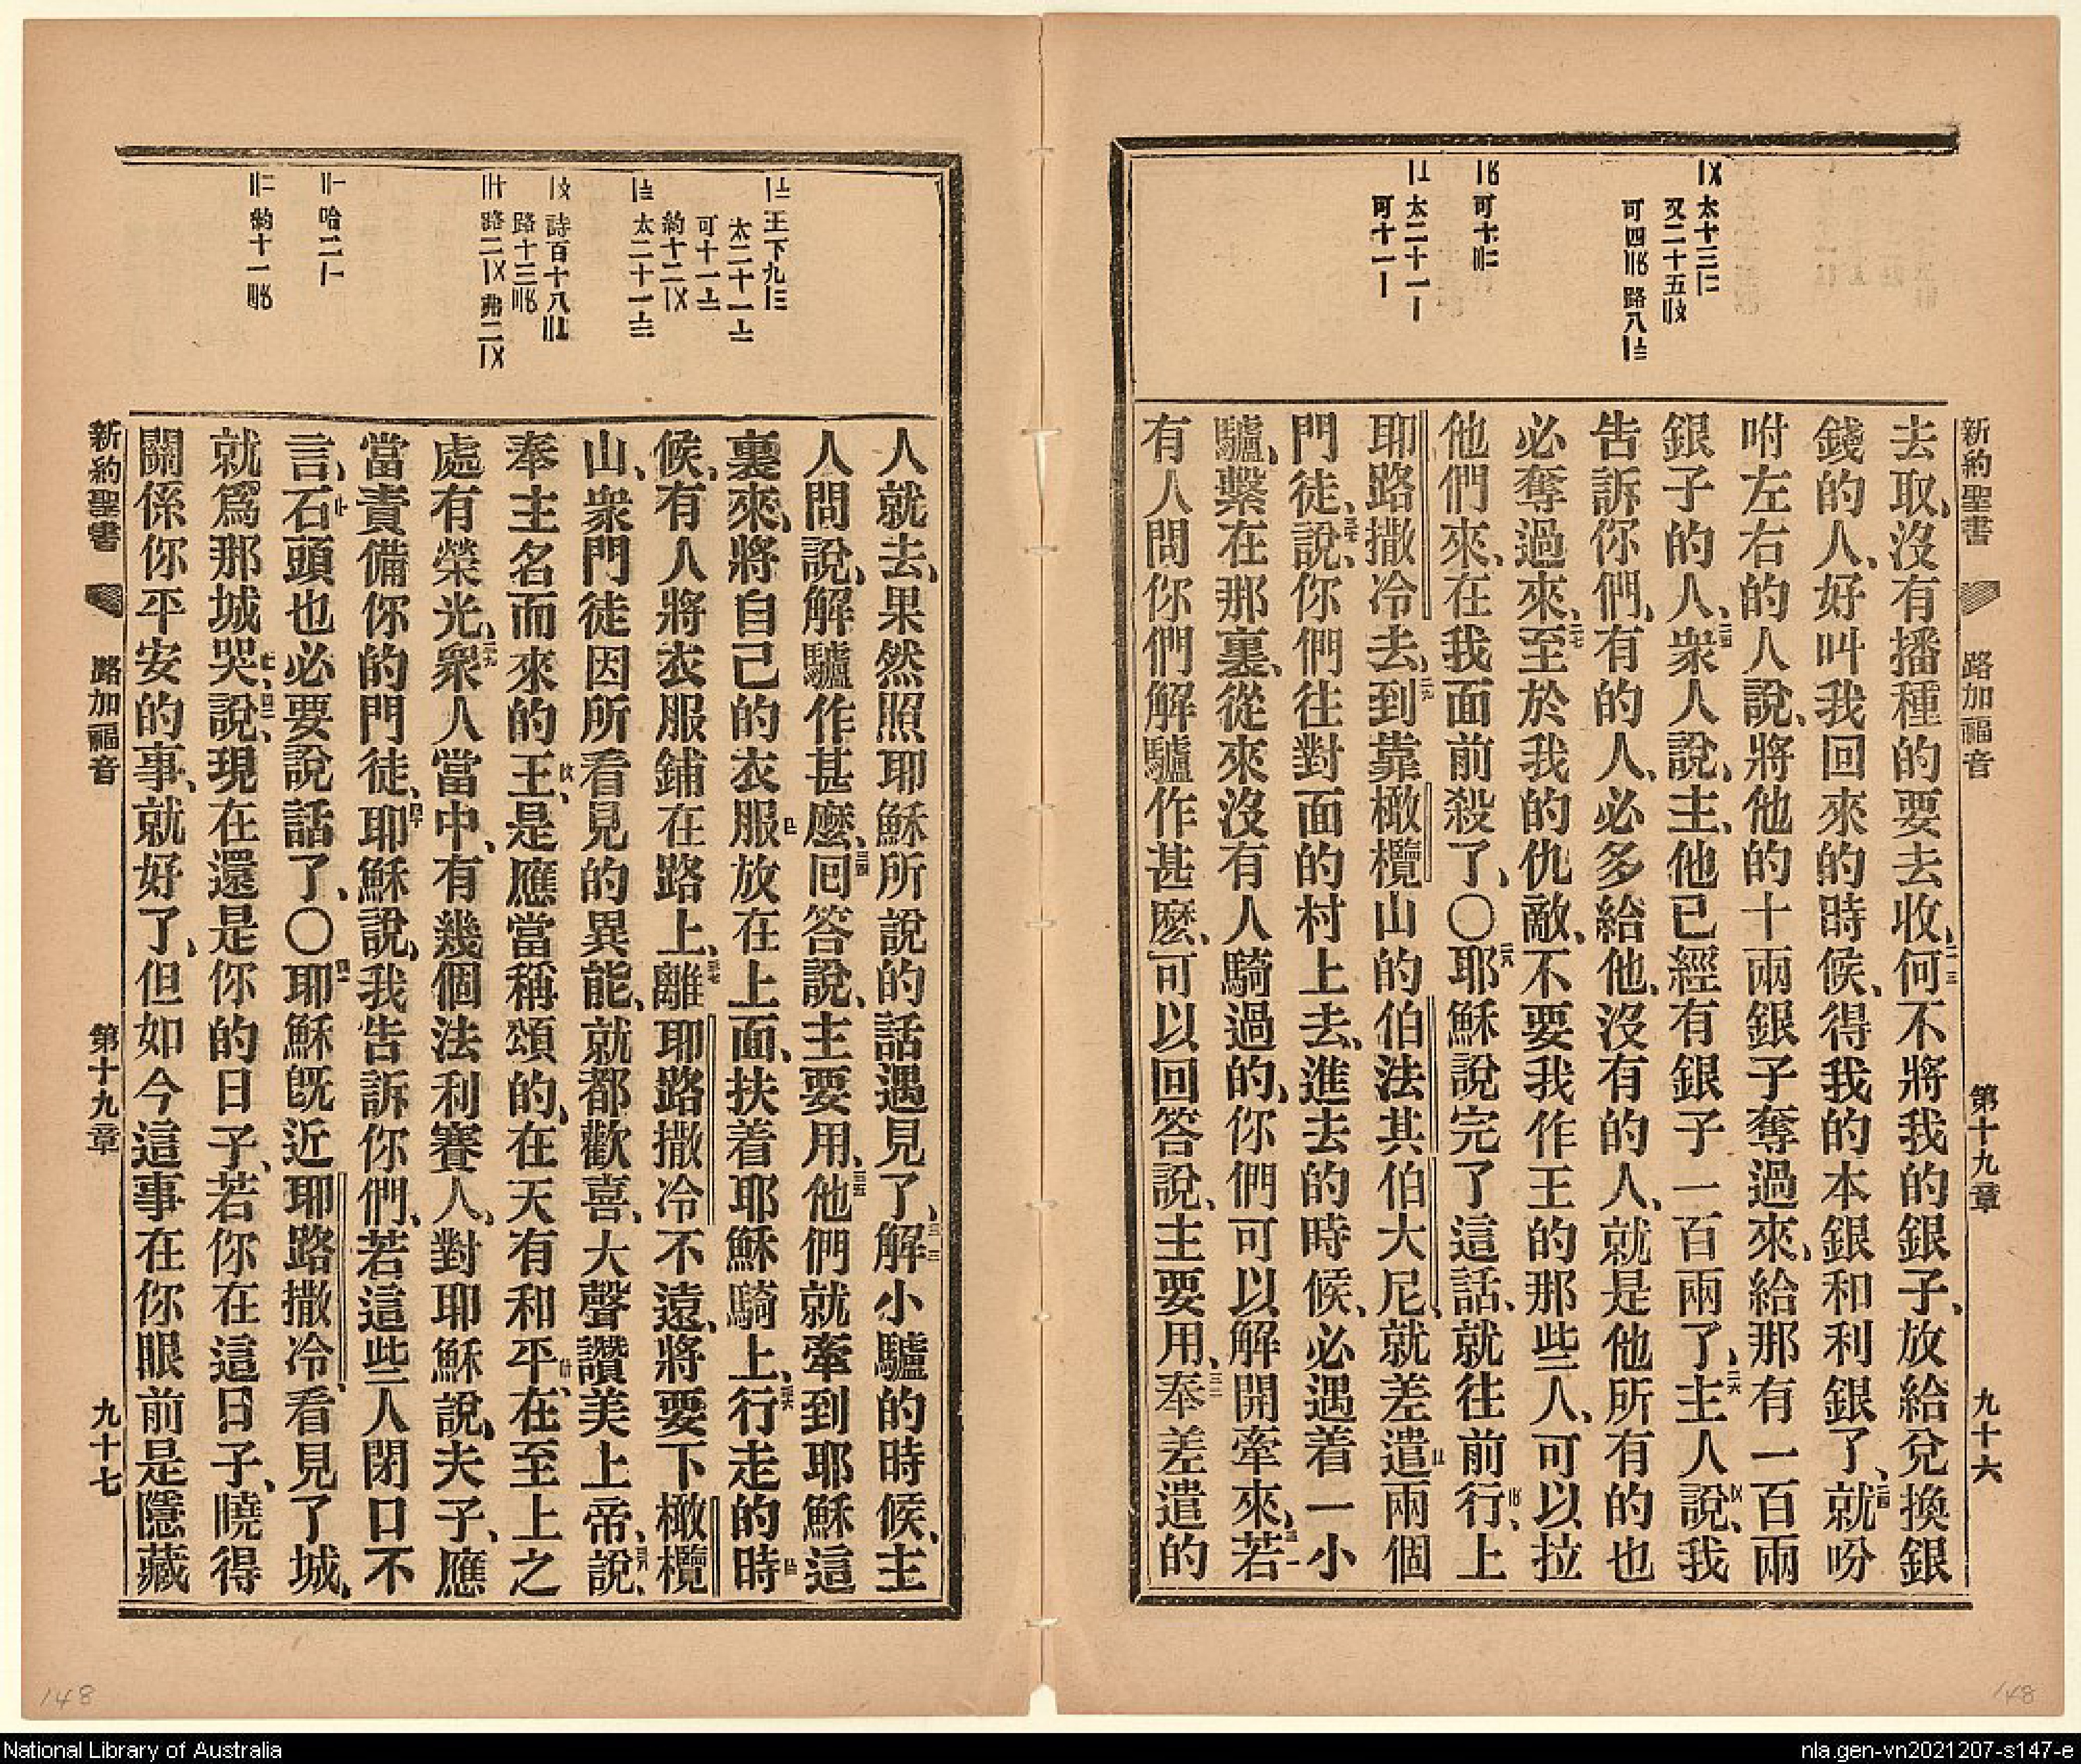 新約聖書 路加福音 第十九章 九十六
〤太十三〢
又二十五
可四 路八
可十
太二十一〡
可十一〡
去取、沒有播種的要去收、何不將我的銀子、放給兌換銀
錢的人、好叫我回來的時候、得我的本銀和利銀了、就吩
咐左右的人說、將他的十兩銀子奪過來、給那有一百兩
銀子的人、衆人說、主、他已經有銀子一百兩了、主人說、我
告訴你們、有的人、必多給他、沒有的人、就是他所有的也
必奪過來、至於我的仇敵、不要我作王的那些人、可以拉
他們來、在我面前殺了、〇耶穌說完了這話、就往前行、上
耶路撒冷去、到靠橄欖山的伯法其伯大尼、就差遣兩個
門徒、說、你們往對面的村上去、進去的時候、必遇着一小
驢、繫在那裏、從來沒有人騎過的、你們可以解開牽來、若
有人問你們解驢作甚麽、可以回答說、主要用、奉差遣的
王下九
太二十一
可十一
約十二
太二十一
詩百十八
路十三
路二 弗二
哈二
約十一
人就去、果然照耶穌所說的話遇見了、解小驢的時候、主
人問說、解驢作甚麽、回答說、主要用、他們就牽到耶穌這
裏來、將自己的衣服放在上面、扶着耶穌騎上、行走的時
候、有人將衣服鋪在路上、離耶路撒冷不遠、將要下橄欖
山、衆門徒因所看見的異能、就都歡喜、大聲讚美上帝、說、
奉主名而來的王、是應當稱頌的、在天有和平、在至上之
處有榮光、衆人當中、有幾個法利賽人、對耶穌說、夫子、應
當責備你的門徒、耶穌說、我告訴你們、若這些人閉口不
言、石頭也必要說話了、〇耶穌旣近耶路撒冷、看見了城、
就爲那城哭、說、現在還是你的日子、若你在這日子、曉得
關係你平安的事、就好了、但如今這事在你眼前是隱藏
新約聖書 路加福音 第十九章 九十七
148
148
National Library of Australia
nla.gen-vn2021207-s147-e